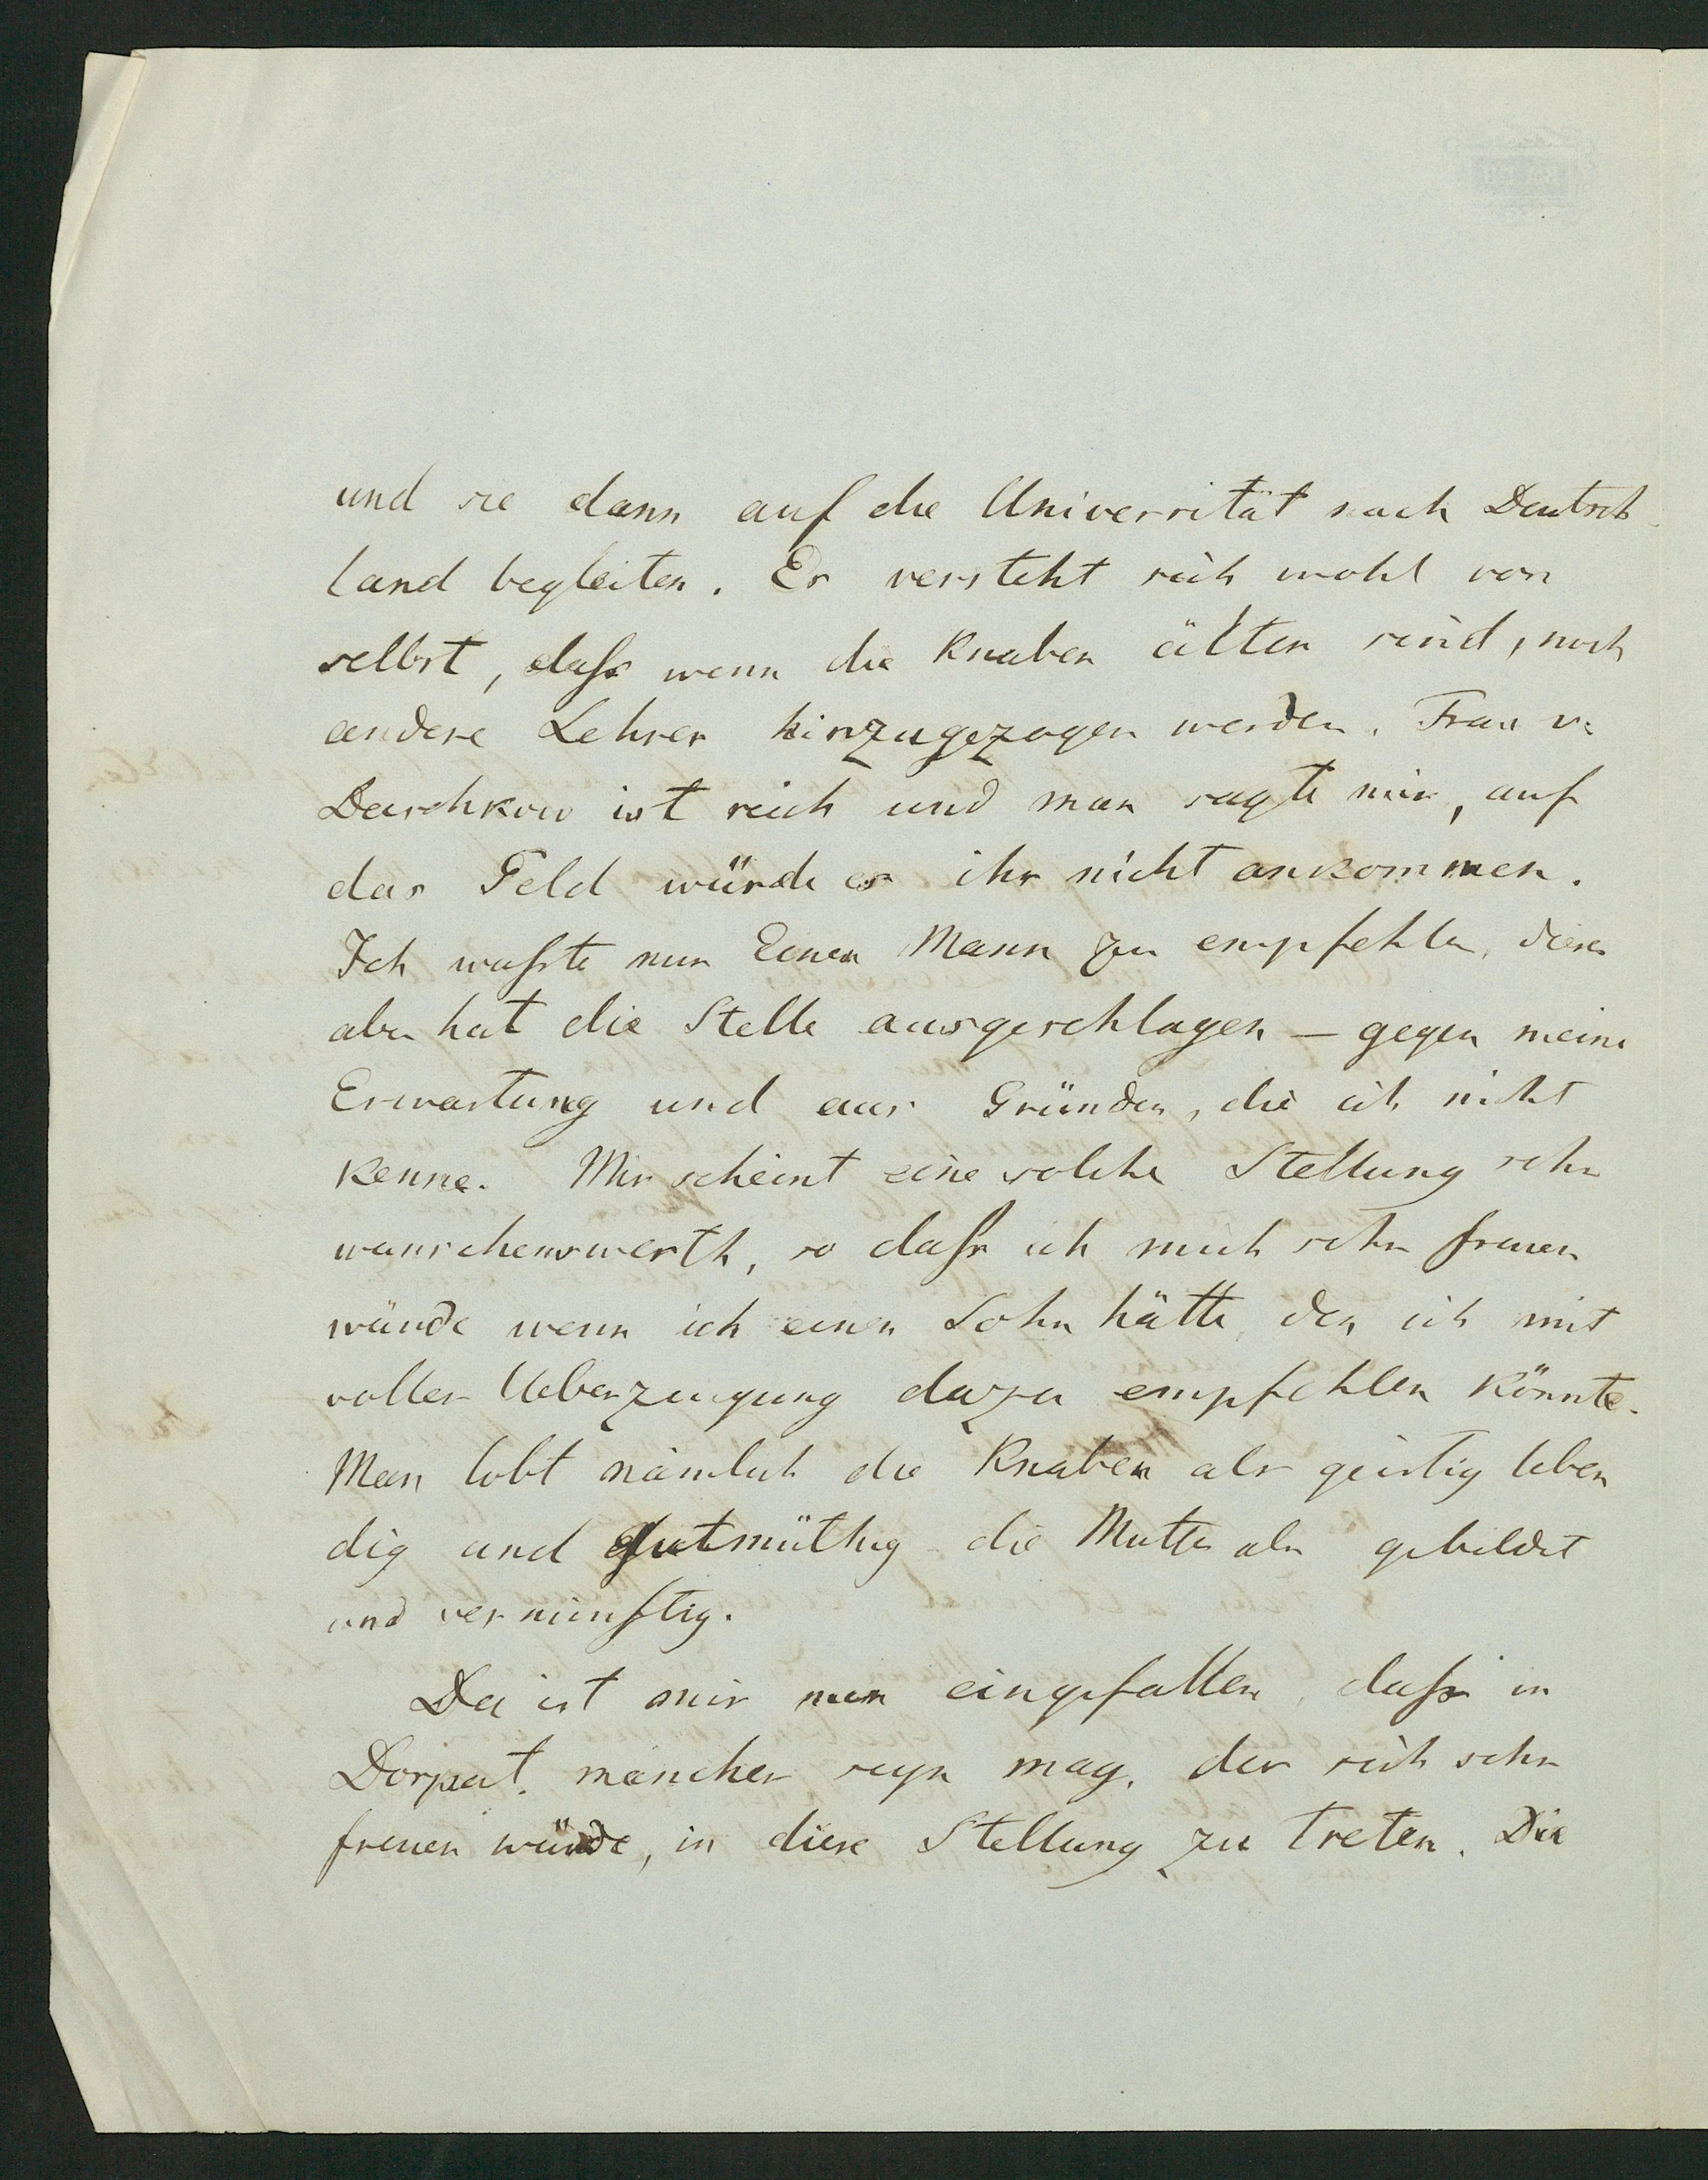 und sie dann auf die Universität nach Deutsch-
land begleiten. Es versteht sich wohl von
selbst, dass wenn die Knaben älter sind, noch
andere Lehrer hinzugezogen werden. Frau v.
Daschkow ist reich und man sagte mir, auf
das Geld würde es ihr nicht ankommen.
Ich wusste nur Einen Mann zu empfehlen, dieser
aber hat die Stelle ausgeschlagen – gegen meine
Erwartung und aus Gründen, die ich nicht
kenne. Mir scheint eine solche Stellung sehr
wunschenswerth, so dass ich mich sehr freuen
würde wenn ich einen Sohn hätte, den ich mit
voller Ueberzeugung dazu empfehlen könnte.
Man lobt nämlich die Knaben als geistig leben
dig und gutmüthig die Mutter als gebildet
und vernünftig.
Da ist mir nun eingefallen, dass in
Dorpat mancher seyn mag, der sich sehr
freuen würde, in diese Stellung zu treten. Die